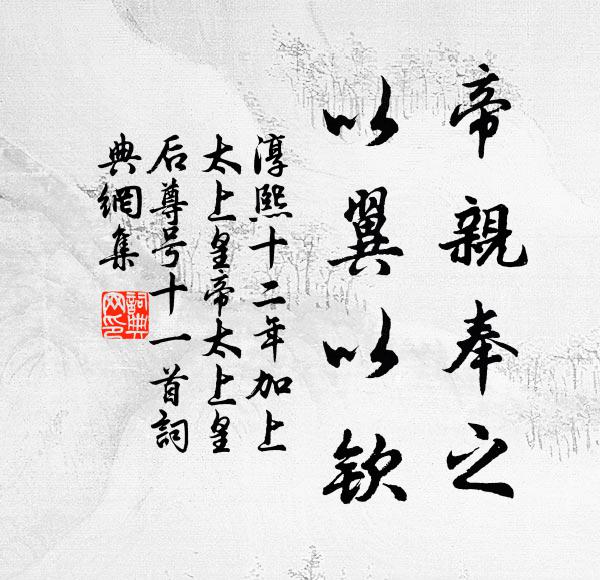 帝親奉之
以翼以欽
淳熙十二年加上
太上皇帝太上皇
后尊号十一首詞
典網集
詞典
网印